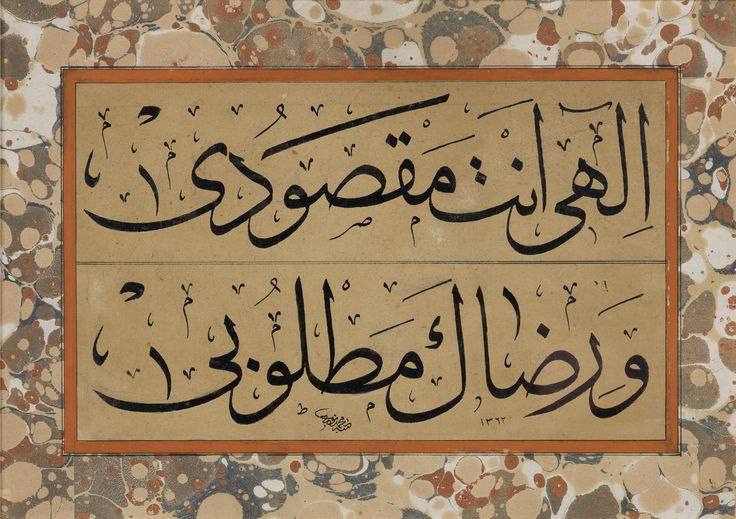 اِلٓهٰى اَنْتَ مَقْصُودٰى
وَرِضَاكَ مَطْلُوبٰى
١٣٦٢